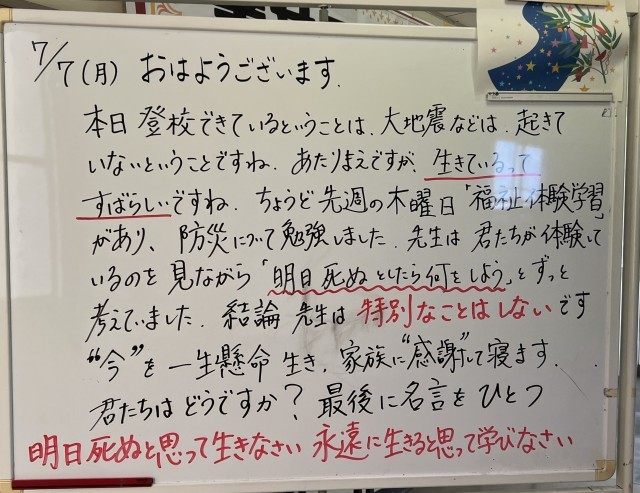 7/7(月) おはようございます.
本日 登校できているということは、大地震などは、起きて
いないということですね. あたりまえですが、生きているって
すばらしいですね. ちょうど先週の木曜日「福祉体験学習」
があり、防災について勉強しました. 先生は 君たちが体験して
いるのを 見ながら「明日死ぬとしたら何をしよう」とずっと
考えていました. 結論 先生は 特別なことはしないです
“今”を 一生懸命 生き、家族に“感謝”して寝ます.
君たちは どうですか? 最後に名言を ひとつ
明日死ぬと思って生きなさい 永遠に生きると思って学びなさい